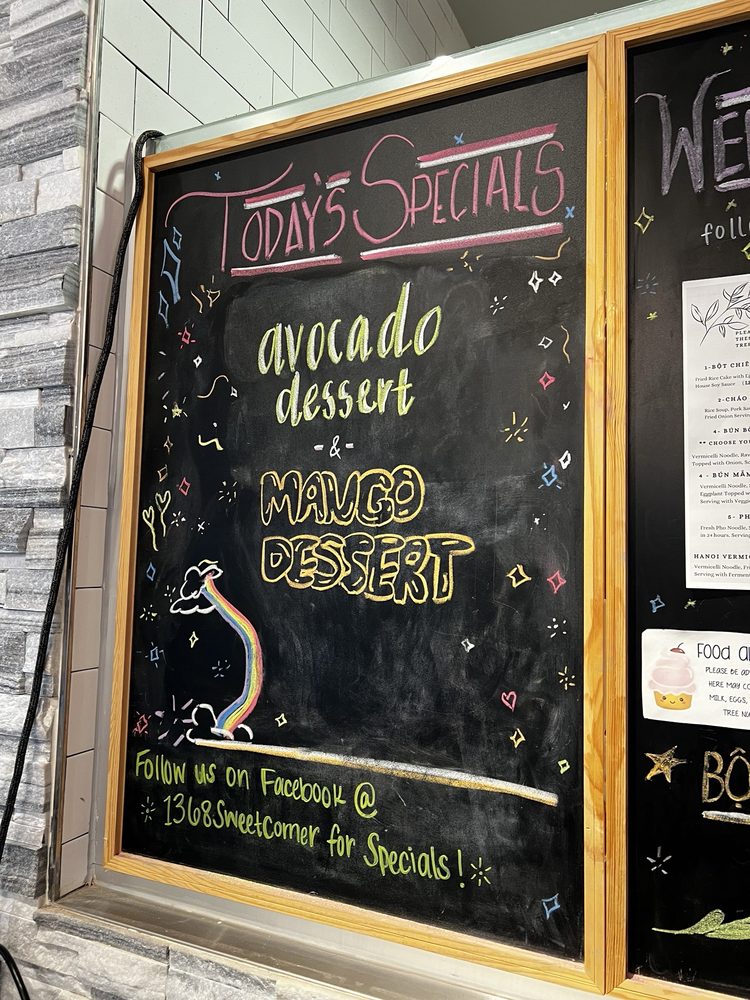 TODAY'S SPECIALS
avocado
dessert
- & -
MANGO
DESSERT
Follow us on Facebook @
1368SweetCorner for Specials!
foll
1-BỘT CHIÊ
Fried Rice Cake with
House Soy Sauce
2-CHÁO
Rice Soup, Pork
Fried Onion Serving
4- BÚN
** CHOOSE YOU
Vermicelli Noodle,
Topped with Onion,
4 - BÚN MẮM
Vermicelli Noodle,
Eggplant Topped
Serving with
5- PH
Fresh Pho Noodle,
in 24 hours. Serving
HANOI VERMI
Vermicelli Noodle,
Serving with
FOOD
PLEASE BE
HERE MAY
MILK, EGGS,
TREE
BỘ